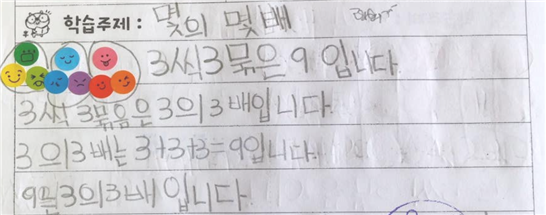 학습주제 : 몇의 몇배
3씩3묶은 9 입니다.
3씩 3묶음은 3의 3 배입니다.
3 의 3 배는 3+3+3=9입니다.
9는 3의3 배 입니다